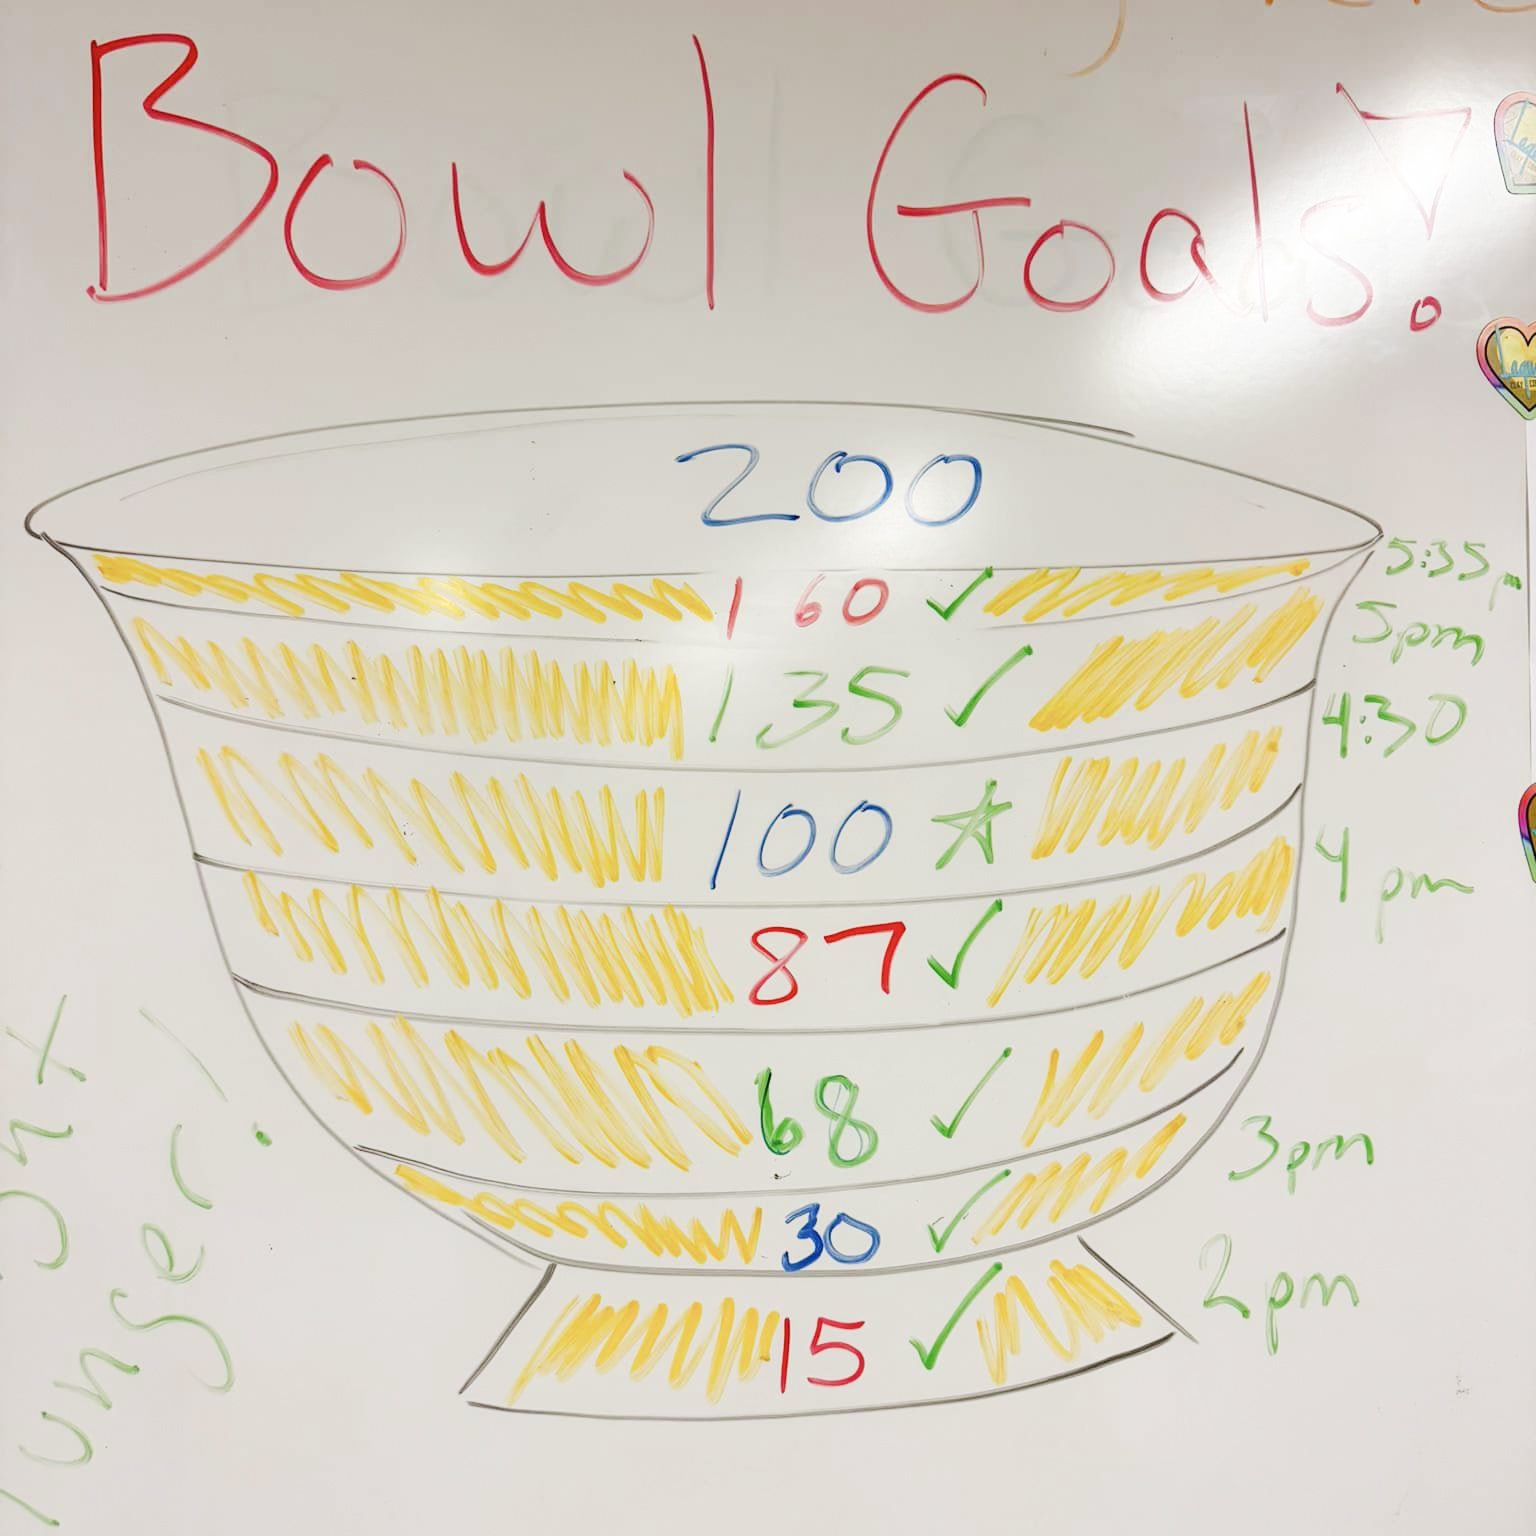 Bowl Goals!
200
160 ✓ 5:35pm
135 ✓ 5pm
4:30
100 ☆
87 ✓ 4 pm
68 ✓
30 ✓ 3pm
15 ✓ 2pm